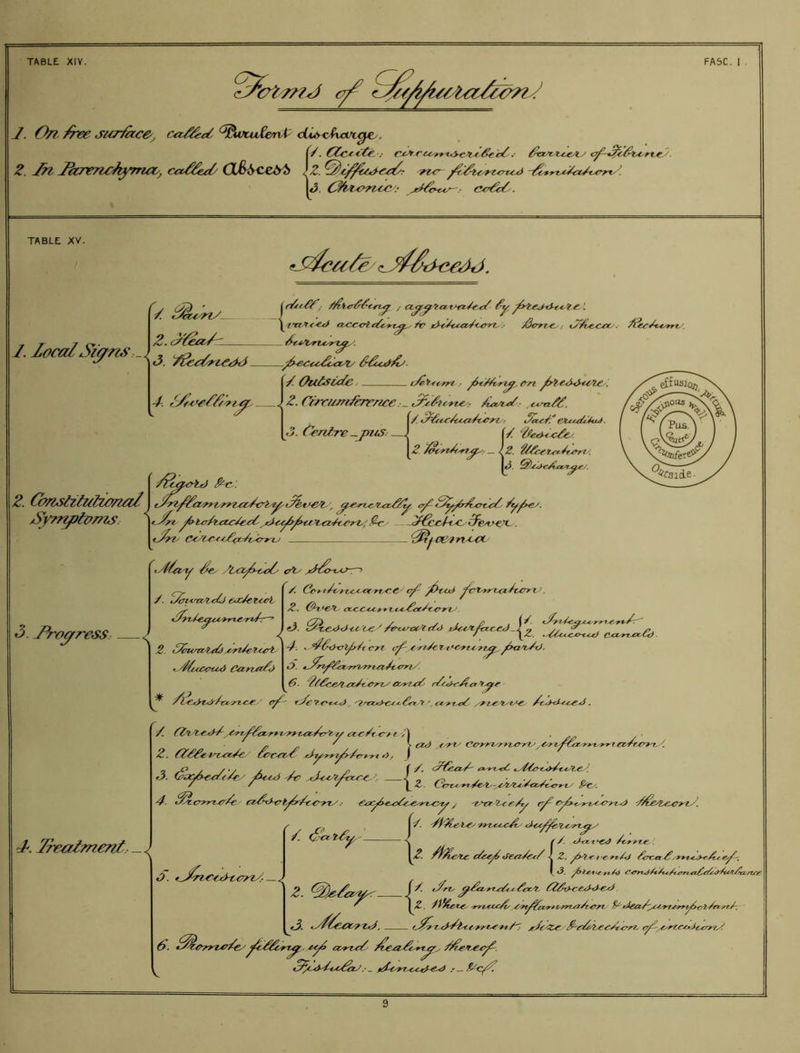 TABLE XIV.
FASC. I.
Forms of Suppuration.
1. On free surface, called Purulent discharge.
2. In Parenchyma, called Abscess
1. Acute : circumscribed : barrier of Fibrine.
2. Diffused : no fibrinous limitation.
3. Chronic : slow : cold.
TABLE XV.
Acute Abscess.
1. Local Signs.
1. Pain
dull, throbbing, aggravated by pressure.
varied according to situation : Bone, Theca, Rectum.
2. Heat
burning.
3. Redness
peculiar blush.
4. Swelling
1. Outside. Serum, pitting on pressure.
2. Circumference. Fibrine, hard, wall.
3. Centre - pus.
1. Fluctuation, Tact. eruditus.
2. Pointing
1. Vesicle.
2. Ulceration.
3. Discharge.
effusion, pitting
Fibrinous Wall
Pus.
Centre
Circumference
Outside.
2. Constitutional Symptoms.
Rigors &c.
Inflammatory Fever, generally of Typhoid type.
In protracted suppuration, &c. Hectic Fever.
In circulation Pyaemia
3. Progress.
May be rapid or slow
1. Towards exterior
Integument
2. Towards interior
Mucous Canals
1. Continuance of pus formation.
2. Over accumulation.
3. Pressure towards surfaces
1. Integument
2. Mucous canals.
4. Absorption of intervening parts.
5. Inflammation.
6. Ulceration and discharge
* Resistance of Serous, vascular, and nerve tissues.
4. Treatment.
1. Arrest inflammatory action
2. Alleviate local symptoms,
as in common inflammation.
3. Expedite pus to surface.
1. Heat and Moisture.
2. Counter-irritation &c.
4. Promote absorption : expediency, rarity of opinions thereon.
5. Incision.
1. Early
1. Where much suffering
2. Where deep seated
1. saves time.
2. prevents local mischief.
3. prevents constitutional disturbance
2. Delay
1. In glandular Abscesses
2. Where much inflammation & slight impairment.
3. Means.
Instrument, size & direction of incision.
6. Promote filling up and healing thereof.
Fistula :- sinuses :- &c.
9